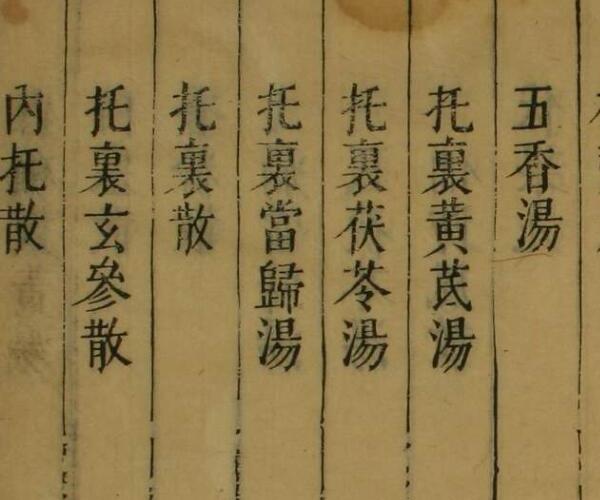 五香湯
托裏黃芪湯
托裏茯苓湯
托裏當歸湯
托裏散
托裏玄參散
內托散